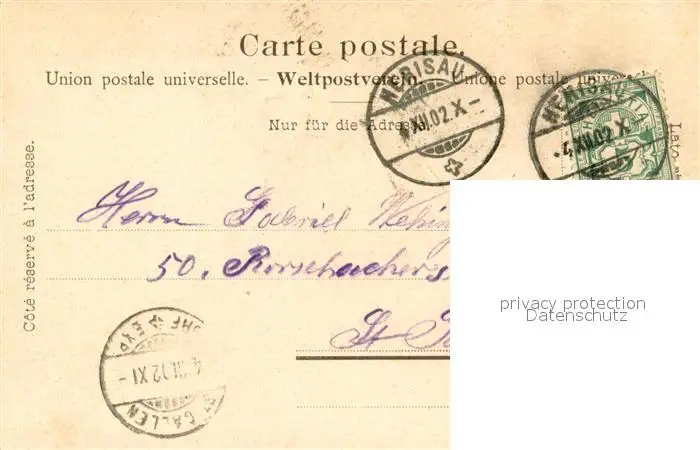 Carte postale.
Union postale universelle. – Weltpostverein. – Unione postale univers
Nur für die Adresse.
Côté réservé à l'adresse.
Lato
HERISAU
XII.02 X –
HERISAU
4.XII.02.X
HELVETIA
Herrn Gabriel
50. Rorschachers
St.
ST. GALLEN
4.XII.02 XI –
EXP.
privacy protection
Datenschutz